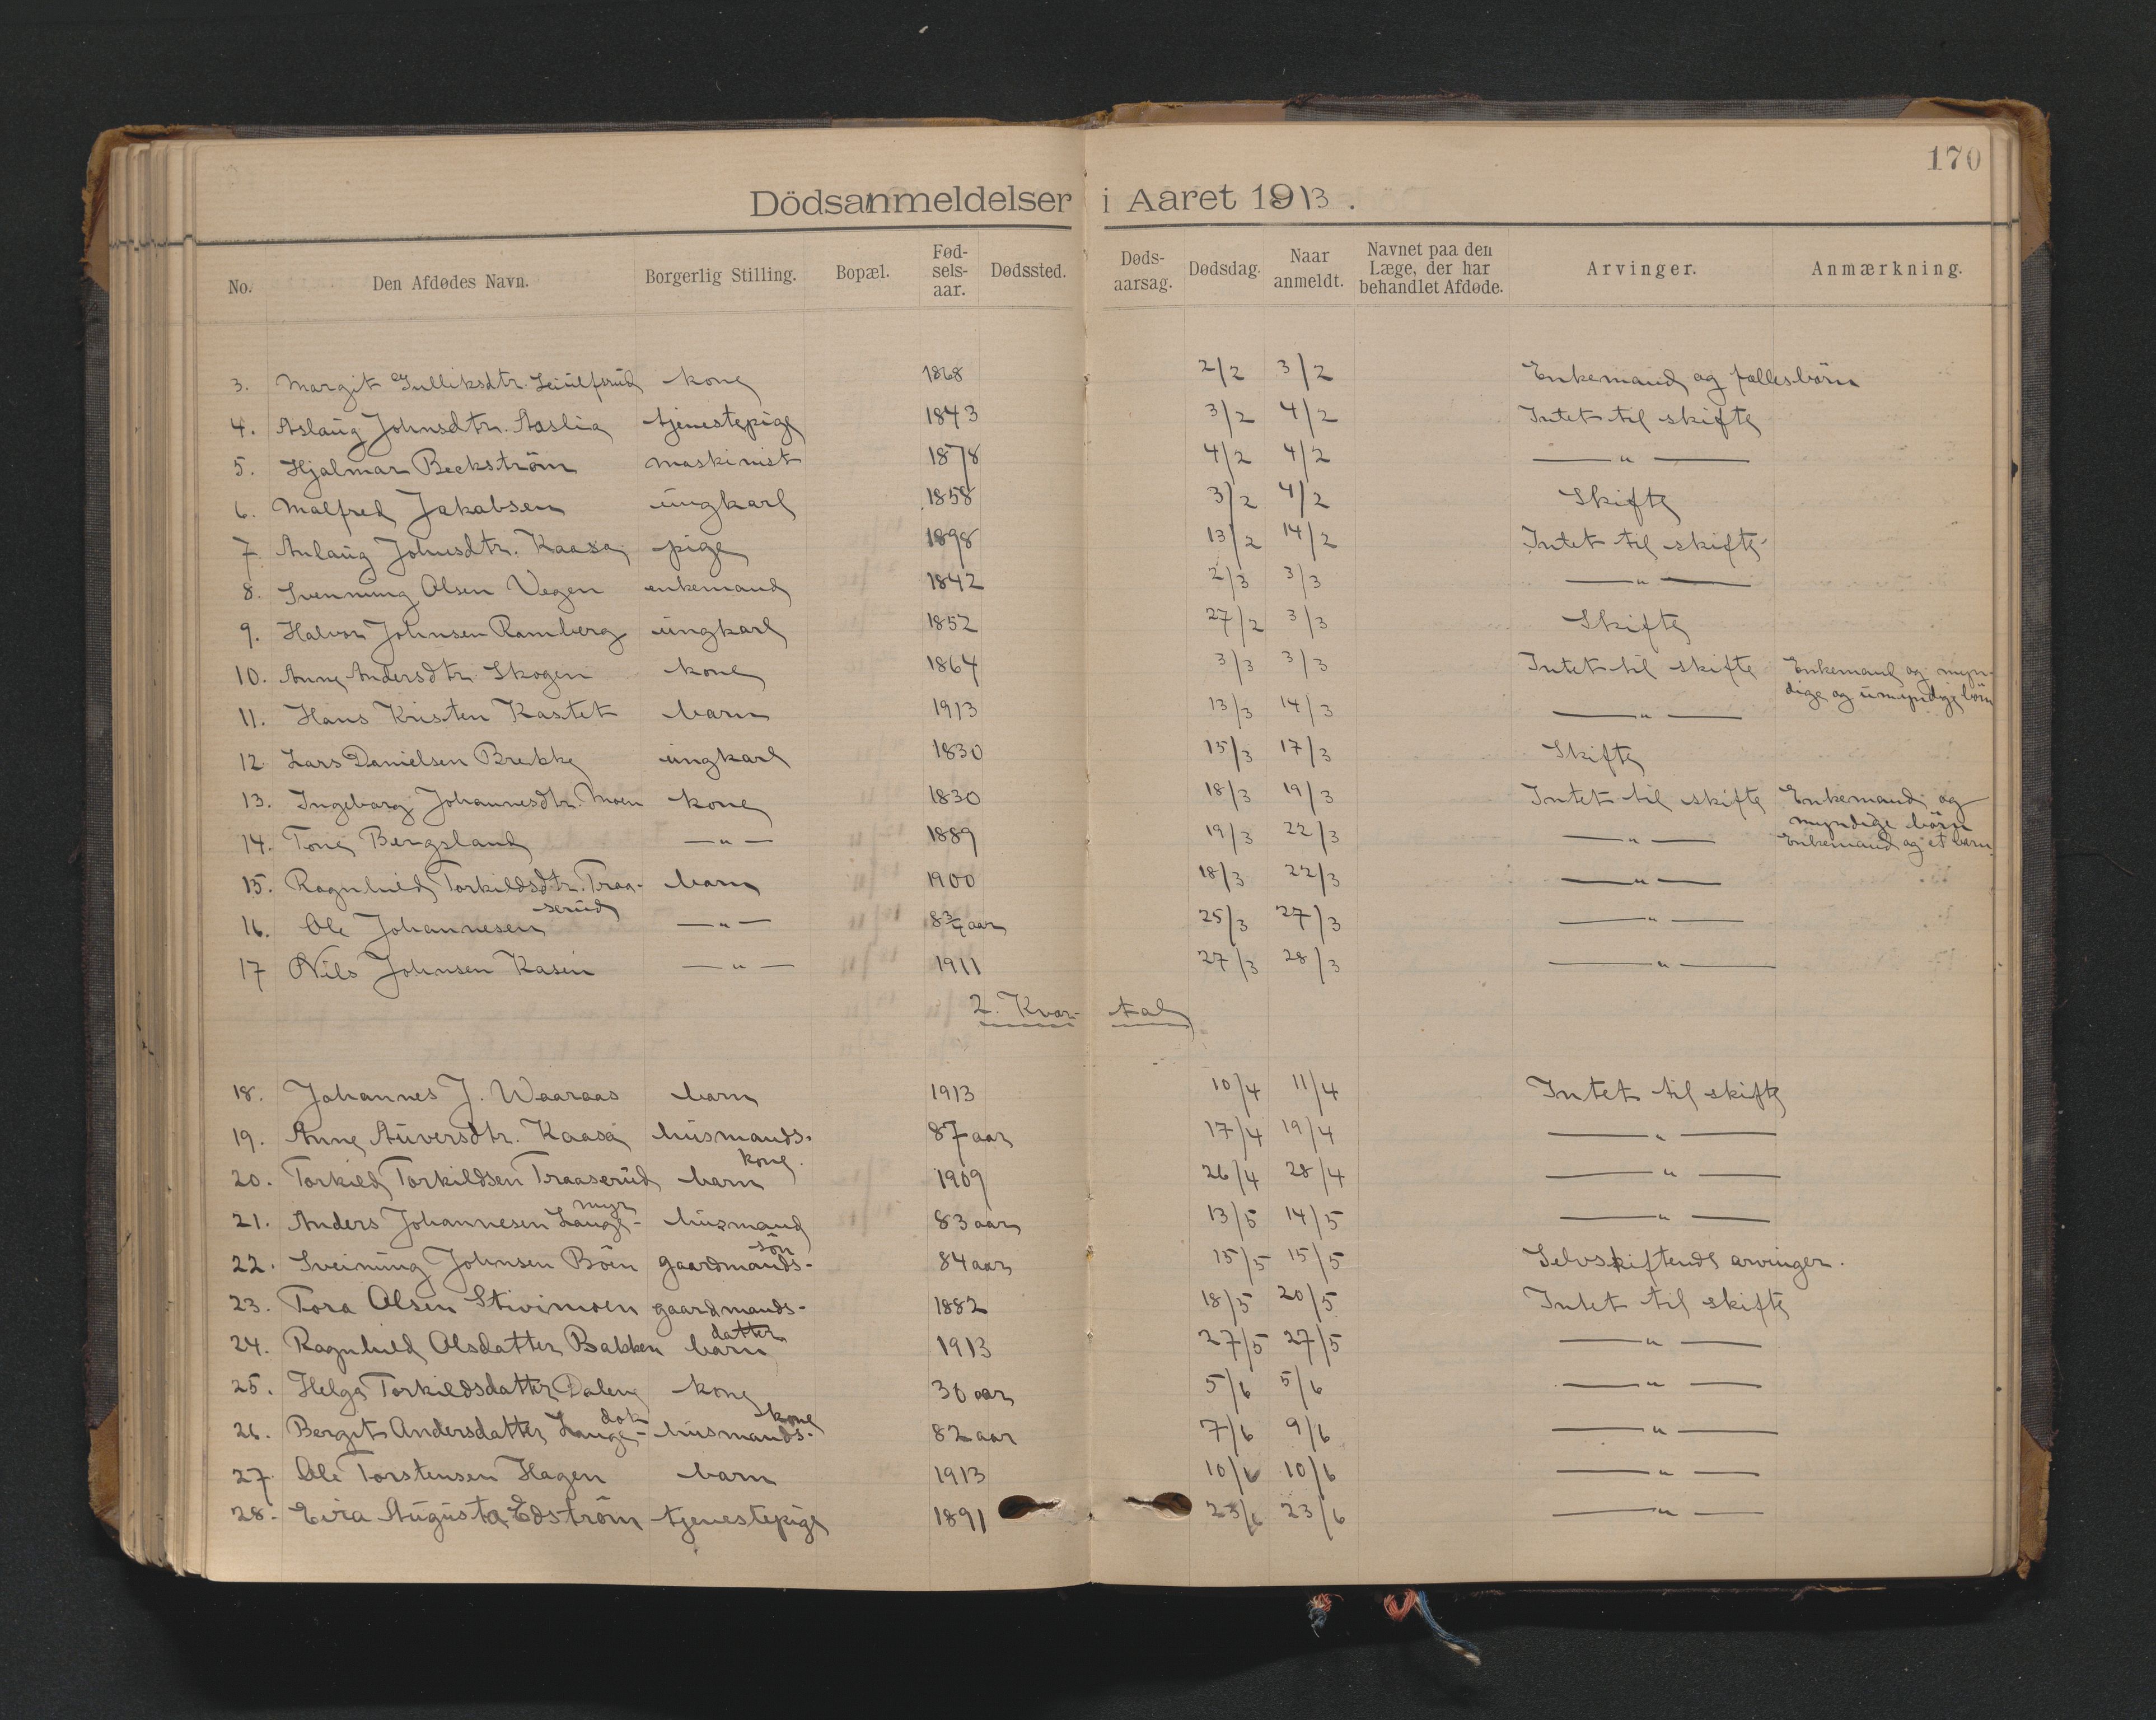 170
Dödsanmeldelser i Aaret 1913.
No. Den Afdødes Navn. Borgerlig Stilling. Bopæl. Fødselsaar. Dødssted. Dødsaarsag. Dødsdag. Naar anmeldt. Navnet paa den Læge, der har behandlet Afdøde. Arvinger. Anmærkning.
3. Margit Gulliksdtr. Leiulfsrud kone 1868 2/2 3/2 Enkemand og fællesbörn
4. Aslaug Johnsdtr. Aaslia tjenestepige 1843 3/2 4/2 Intet til skifte
5. Hjalmar Beckström maskinist 1878 4/2 4/2 —"—
6. Malfred Jakobsen ungkarl 1858 3/2 4/2 Skifte
7. Anlaug Johnsdtr. Kaasa pige 1898 13/2 14/2 Intet til skifte
8. Svenning Olsen Vegen enkemand 1842 2/3 3/3 —"—
9. Halvor Johnsen Ramberg ungkarl 1852 27/2 3/3 Skifte
10. Anne Andersdtr. Skogen kone 1864 3/3 3/3 Intet til skifte Enkemand og myn-
dige og umyndige börn
11. Hans Kristen Kastet barn 1913 13/3 14/3 —"—
12. Lars Danielsen Brekke ungkarl 1830 15/3 17/3 Skifte
13. Ingeborg Johannesdtr. Moen kone 1830 18/3 19/3 Intet til skifte Enkemand og
myndige börn
14. Tone Bergsland —"— 1889 19/3 22/3 —"— Enkemand og et barn.
15. Ragnhild Torkildsdtr. Traa- barn 1900 18/3 22/3 —"—
serud
16. Ole Johannesen —"— 8 3/4 aar 25/3 27/3 —"—
17 Nils Johnsen Kasen —"— 1911 27/3 28/3 —"—
2. Kvar- tal
18. Johannes J. Waaraas barn 1913 10/4 11/4 Intet til skifte
19. Anne Auversdtr. Kaasa husmands- 87 aar 17/4 19/4 —"—
kone.
20. Torkild Torkildsen Traaserud barn 1909 26/4 28/4 —"—
myr
21. Anders Johannesen Lange- husmand 83 aar 13/5 14/5 —"—
sön
22. Sveinung Johnsen Böen gaardmands- 84 aar 15/5 15/5 Selvskiftende arvinger.
23. Tora Olsen Stivimoen gaardmands- 1882 18/5 20/5 Intet til skifte
datter
24. Ragnhild Olsdatter Bakken barn 1913 27/5 27/5 —"—
25. Helga Torkildsdatter Dalen kone 30 aar 5/6 5/6 —"—
dok kone
26. Bergit Andersdatter Lange- husmands- 82 aar 7/6 9/6 —"—
27. Ole Torstensen Hagen barn 1913 10/6 10/6 —"—
28. Eira Augusta Edström tjenestepige 1891 23/6 23/6 —"—